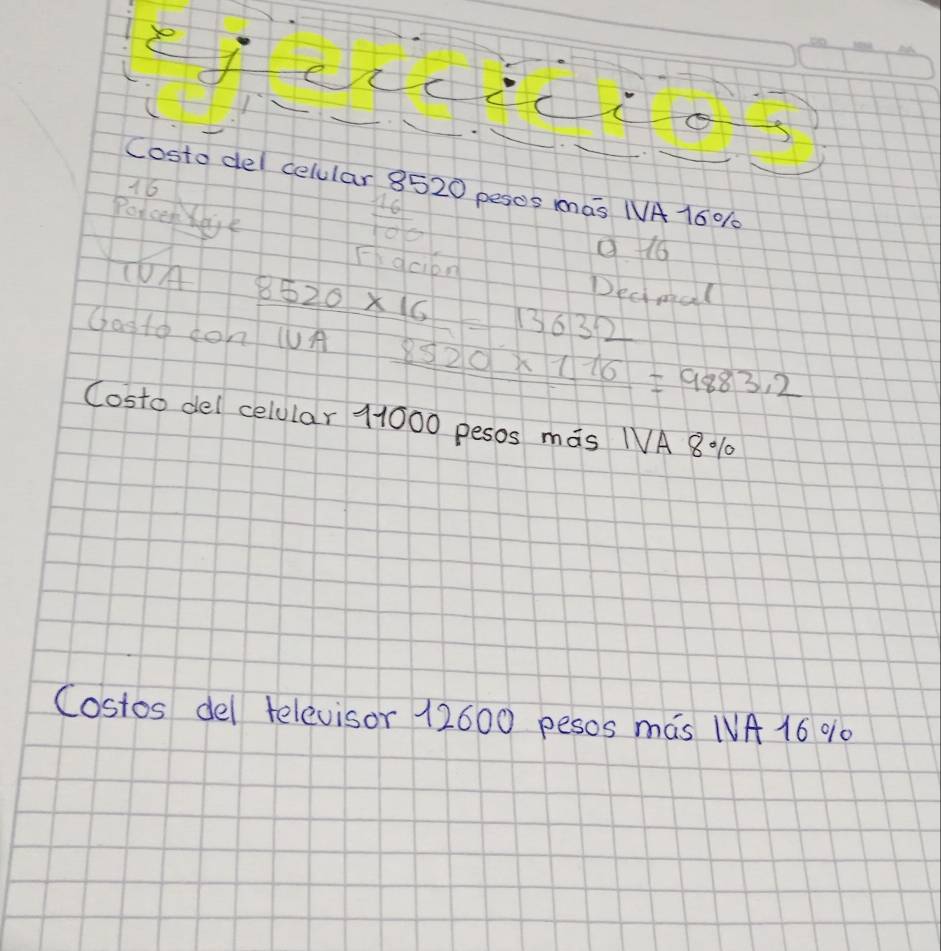 Ejercicios
Costo del celular 8520 pesos más IVA 16%
16 16/100 0.16
Porcentaje Fración Decimal
IVA 8520 x 16 = 13632
Costo con IVA 8520 x 1.16 = 9883,2
Costo del celular 11000 pesos más IVA 8%
Costos del televisor 12600 pesos más IVA 16%